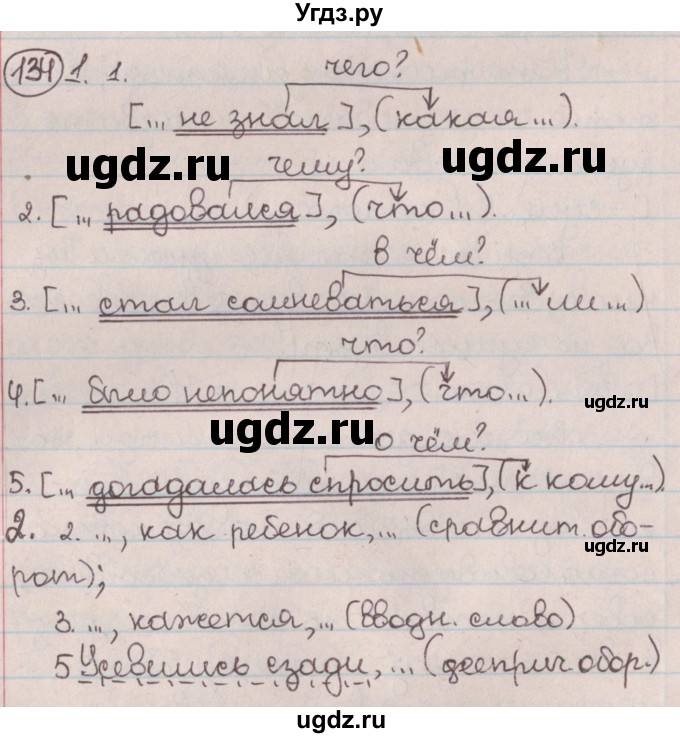 Угдз.ру
134 1. 1. чего?
[... не знал], (какая...).
ugdz.ru ugdz.ru
чему?
2. [... радовался], (что...).
в чём?
3. [... стал сомневаться], (... ли ...)
что?
4. [... было непонятно], (что...).
ugdz.ru
ugdz.ru ugdz.ru
о чём?
5. [... догадалась спросить], (к кому...).
2. 2. ..., как ребенок, ... (сравнит. обо-
ugdz.ru
рот);
3. ..., кажется, ... (вводн. слово)
5 Усевшись сзади, ... (дееприч. обор.)
ugdz.ru